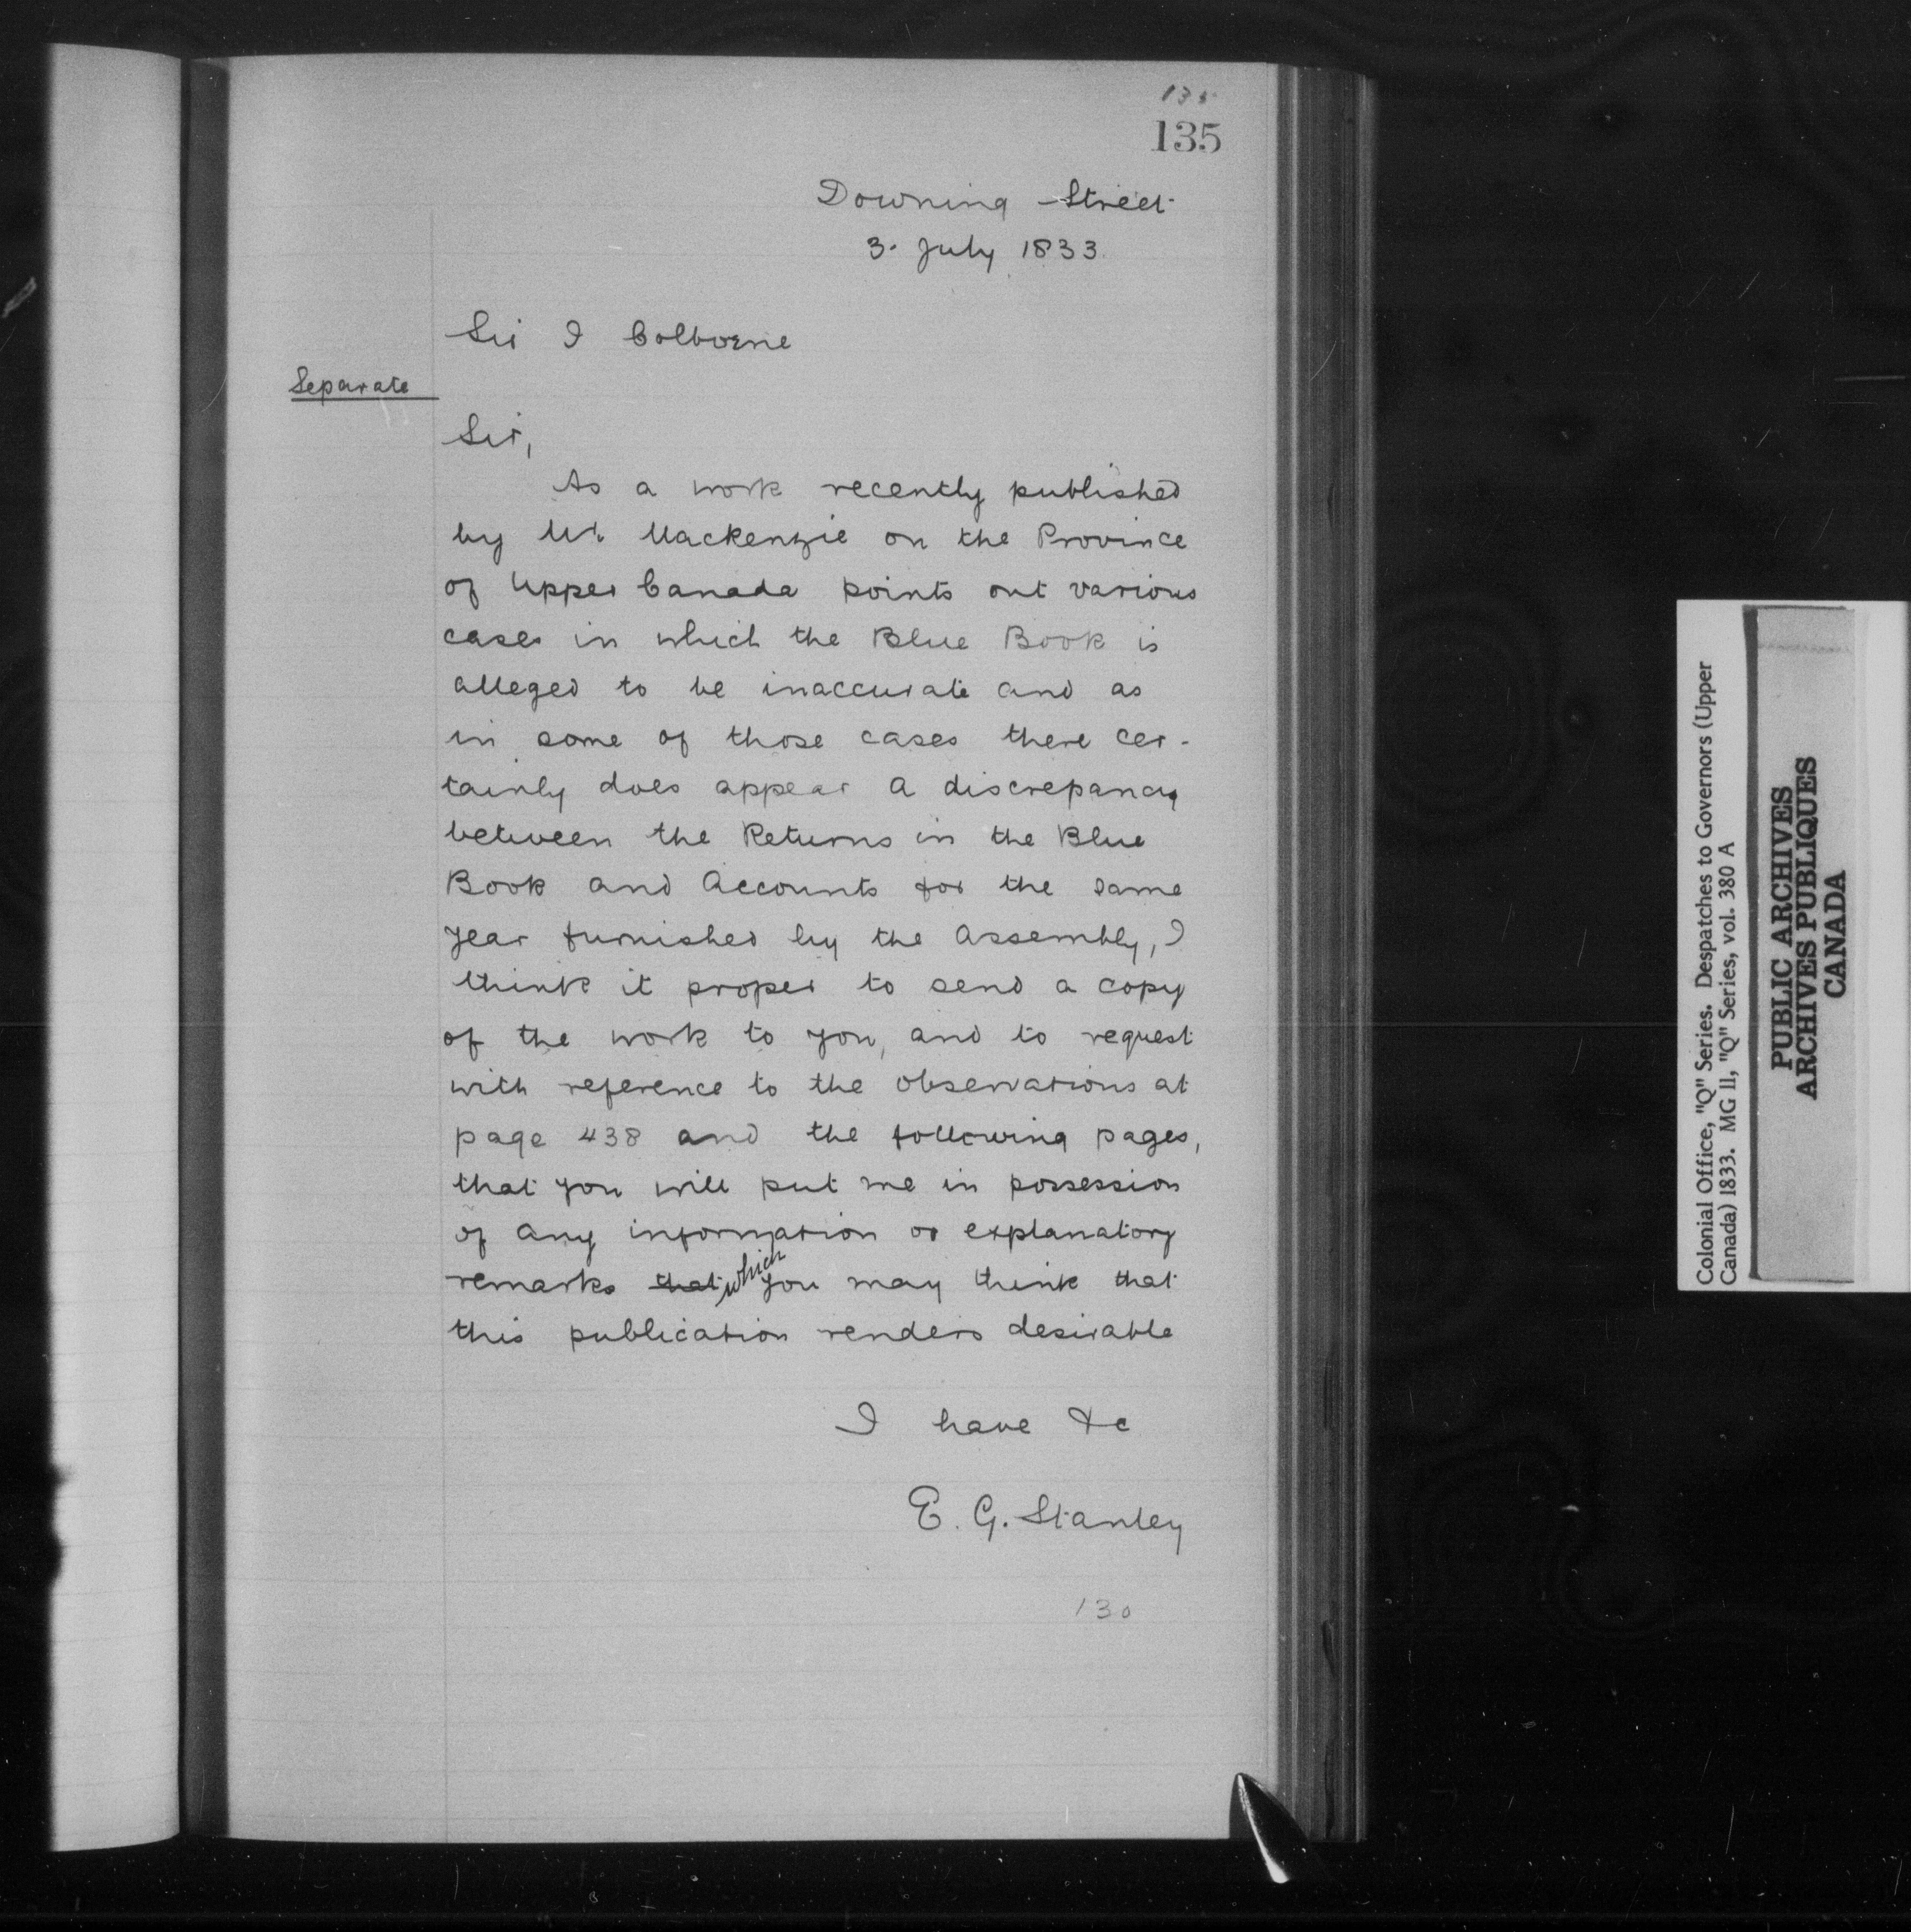 135
135
Downing Street
3. July 1833.
Sir J Colborne
Separate
Sir,
As a work recently published
by Mr. Mackenzie on the Province
of Upper Canada points out various
cases in which the Blue Book is
alleged to be inaccurate and as
in some of those cases there cer-
tainly does appear a discrepancy
between the Returns in the Blue
Book and Accounts for the same
year furnished by the Assembly, I
think it proper to send a copy
of the work to you, and to request
with reference to the observations at
page 438 and the following pages,
that you will put me in possession
of any information or explanatory
remarks that which you may think that
this publication renders desirable
I have &c
E. G. Stanley
130
Colonial Office, "Q" Series. Despatches to Governors (Upper
Canada) 1833. MG 11, "Q" Series, vol. 380 A
PUBLIC ARCHIVES
ARCHIVES PUBLIQUES
CANADA